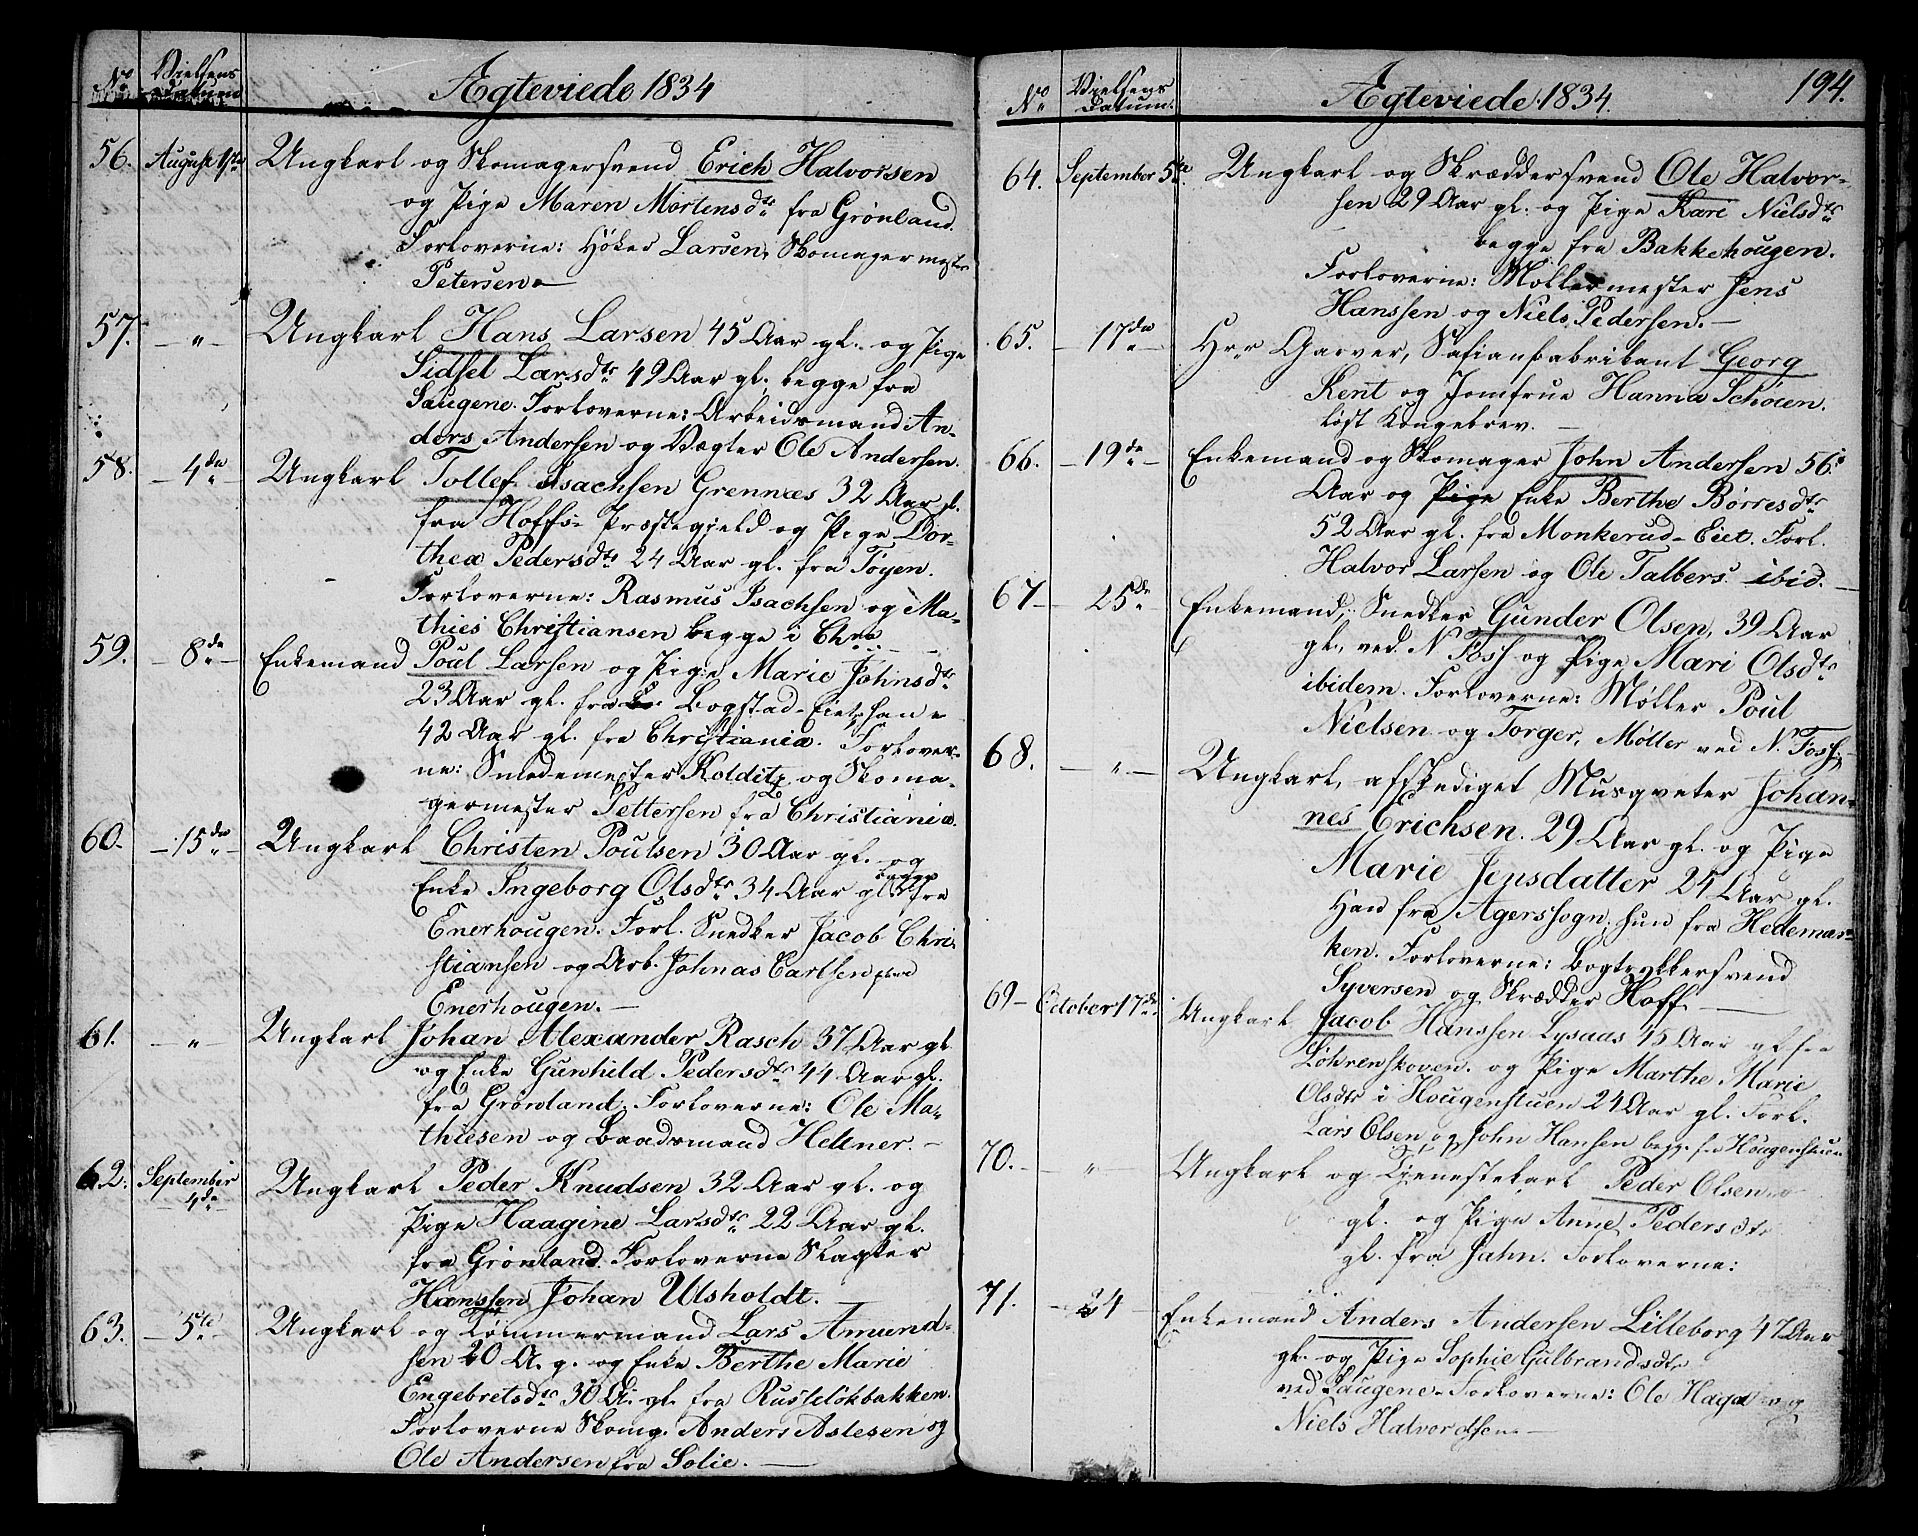 No Vielsens Datum
Ægteviede 1834
56. August 1ste Ungkarl og Skomagersvend Erich Halvorsen
og Pige Maren Mortensdtr fra Grønland.
Forloverne: Høker Larsen, Skomagermester
Petersen.
57. " Ungkarl Hans Larsen 45 Aar gl. og Pige
Sidsel Larsdtr 49 Aar gl. begge fra
Saugene. Forloverne: Arbeidsmand An-
ders Andersen og Vægter Ole Andersen.
58. 4de Ungkarl Tollef Isachsen Grennæs 32 Aar gl.
fra Hoffs Præstegjeld og Pige Dor-
thea Pedersdtr 24 Aar gl. fra Tøyen.
Forloverne: Rasmus Isachsen og Ma-
thies Christiansen begge i Chra
59. 8de Enkemand Poul Larsen og Pige Marie Johnsdtr
23 Aar gl. fra Bogstad-Eiet, han
42 Aar gl. fra Christiania. Forlover-
ne: Smedemester Kolditz og Skoma-
germester Pettersen fra Christiania.
60. 15de Ungkarl Christen Poulsen 30 Aar gl. og
Enke Ingeborg Olsdtr 34 Aar gl. begge fra
Enerhougen. Forl. Snedker Jacob Chri-
stiansen og Arb. Johnas Carlsen
Enerhougen.
61. " Ungkarl Johan Alexander Rasch 37 Aar gl
og Enke Gunhild Pedersdtr 44 Aar gl.
fra Grønland. Forloverne: Ole Ma-
thiesen og Baadsmand Heltner.
62. September 4de Ungkarl Peder Knudsen 32 Aar gl. og
Pige Haagine Larsdtr 22 Aar gl.
fra Grønland. Forloverne Slagter
Hanssen Johan Ulsholdt.
63. 5te Ungkarl og Tømmermand Lars Amund-
sen 20 A. g. og Enke Berthe Marie
Engebretsdtr 30 A. gl. fra Russeløkbakken.
Forloverne Skomg. Anders Aslesen og
Ole Andersen fra Solie.
No Vielsens Datum.
Ægteviede 1834.
194.
64. September 5te Ungkarl og Skræddersvend Ole Halvor-
sen 29 Aar gl. og Pige Kari Nielsdtr
begge fra Bakkehougen.
Forloverne: Møllermester Jens
Hanssen og Niels Pedersen.
65. 17de Hrr Garver, Safianfabrikant Georg
Kent og Jomfrue Hanna Schøien.
løst Kongebrev.
66. 19de Enkemand og Skomager John Andersen 56
Aar og Pige Enke Berthe Børresdtr
52 Aar gl. fra Monkerud-Eiet. Forl.
Halvor Larsen og Ole Talbers ibid.
67 25de Enkemand, Snedker Gunder Olsen, 39 Aar
gl., ved N. Foss og Pige Mari Olsdtr
ibidem. Forloverne: Møller Poul
Nielsen og Torger, Møller ved N. Foss.
68. " Ungkarl, afskediget Musqveter Johan-
nes Erichsen. 29 Aar gl. og Pige
Marie Jensdatter 25 Aar gl.
Han fra Agerssogn, hun fra Hedemar-
ken. Forloverne: Bogtrykkersvend
Syversen og Skrædder Hoff.
69 October 17de Ungkarl Jacob Hanssen Lysaas 45 Aar gl fra
Løhrenskoven. og Pige Marthe Marie
Olsdtr i Hougenstuen 24 Aar gl. Forl.
Lars Olsen og John Hansen begge fra Hougenstuen
70. " Ungkarl og Tjenestekarl Peder Olsen
gl. og Pige Anne Pedersdtr
gl. fra Jahn. Forloverne:
71. 24 Enkemand Anders Andersen Lilleborg 47 Aar
gl. og Pige Sophie Gulbrandsdtr
ved Saugene. Forloverne: Ole Haga og
Niels Halvordsen.